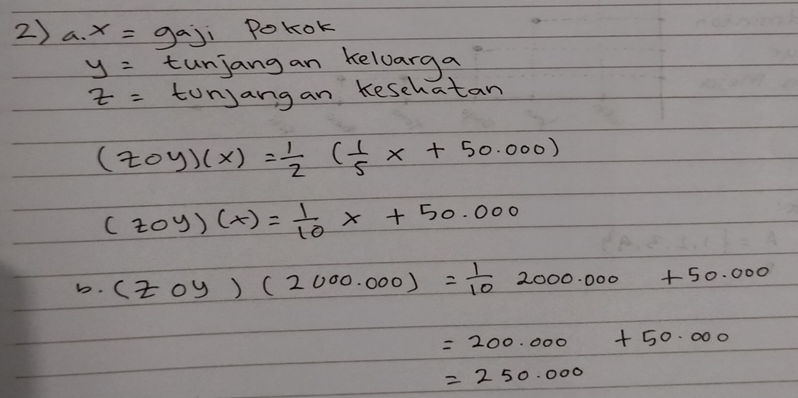 2) a. x = gaji pokok
y = tunjangan keluarga
z = tunjangan kesehatan
(zoy)(x) = 1/2 (1/5 x + 50.000)
(zoy)(x) = 1/10 x + 50.000
b. (zoy)(2000.000) = 1/10 2000.000 + 50.000
= 200.000 + 50.000
= 250.000